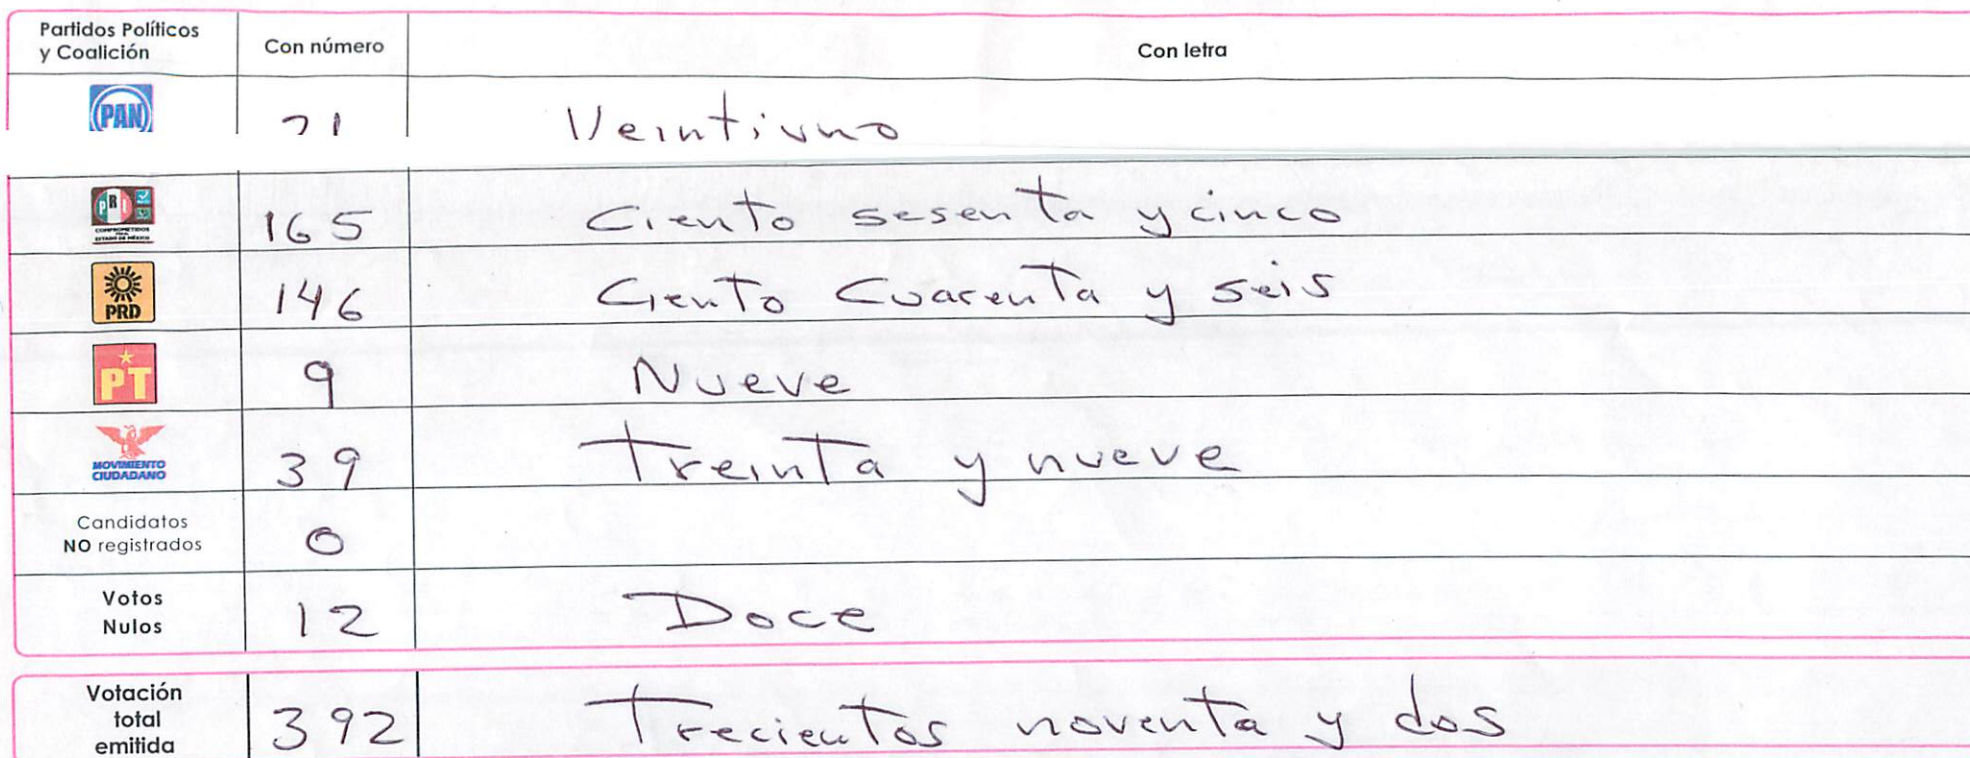 Partidos Políticos y Coalición Con número Con letra
PAN 21 Veintiuno
PRI COMPROMETIDOS ESTADO DE MÉXICO 165 Ciento sesenta y cinco
PRD 146 Ciento Cuarenta y seis
PT 9 Nueve
MOVIMIENTO CIUDADANO 39 Treinta y nueve
Candidatos NO registrados 0
Votos Nulos 12 Doce
Votación total emitida 392 Trecientos noventa y dos